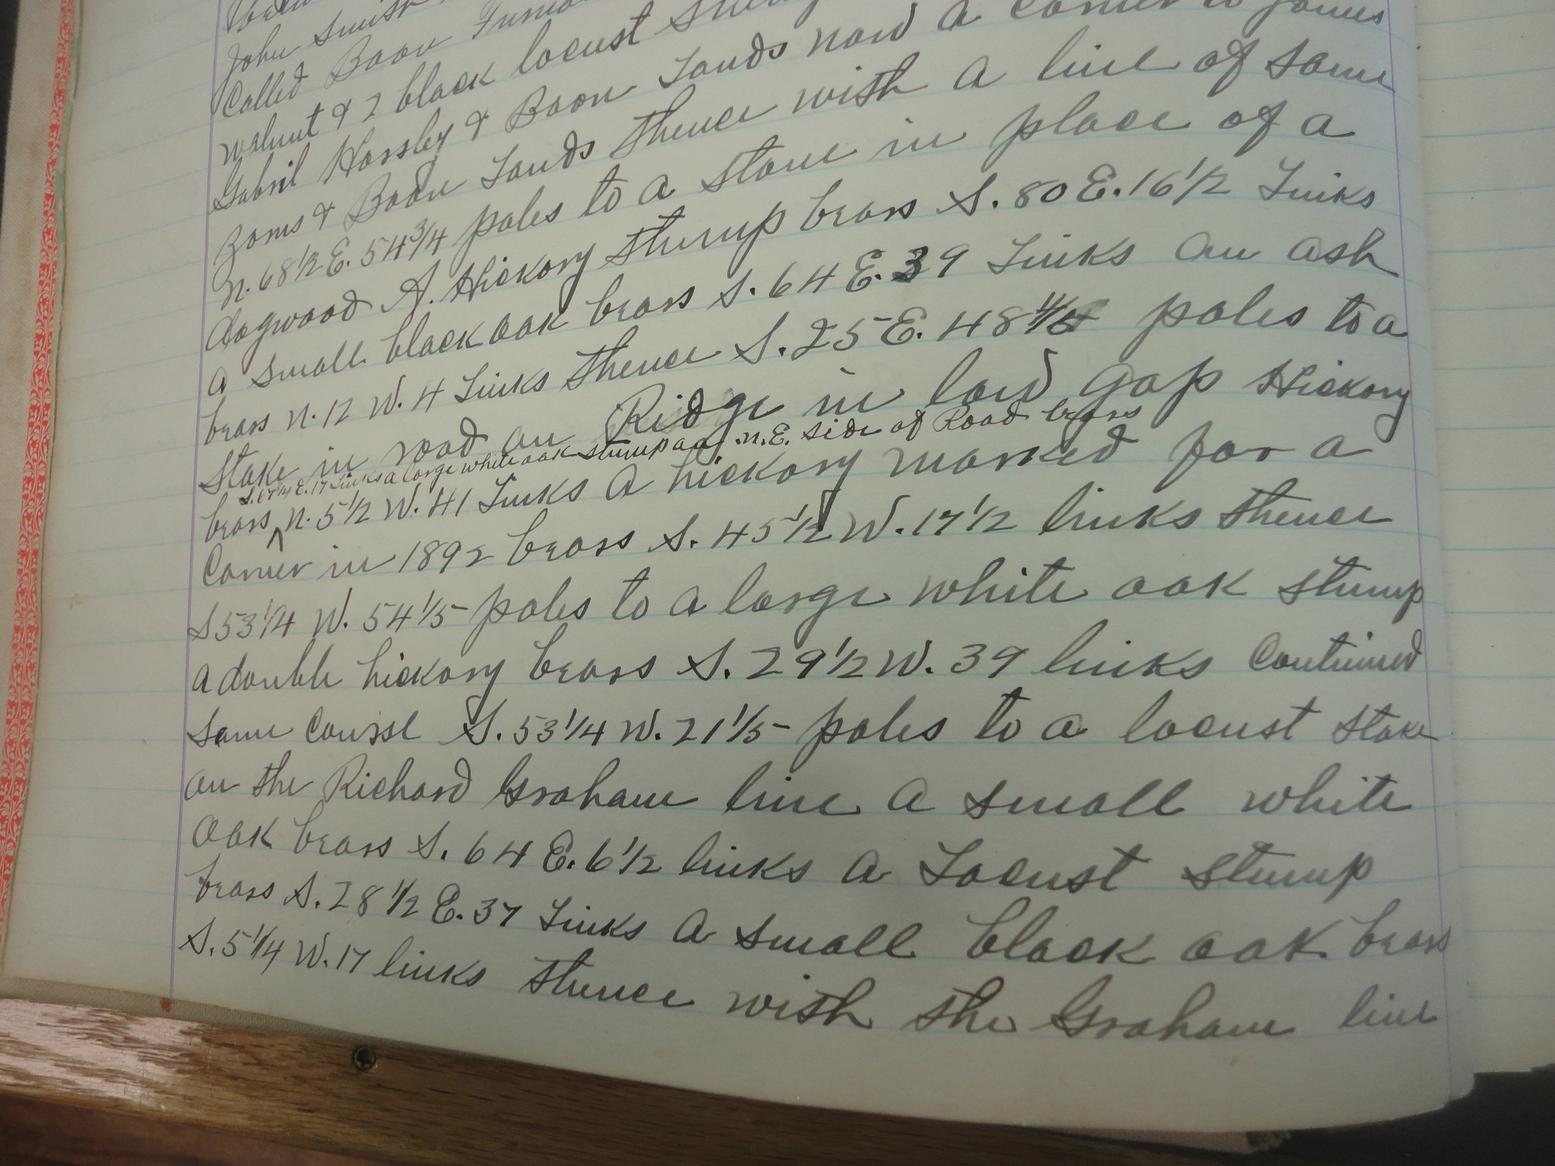 John Smith
Called Boon
walnut & 2 black locust
Gabril Horsley & Boon Lands now a corner to James
Roms & Boon Lands thence with a line of same
N. 68 1/2 E. 54 3/4 poles to a stone in place of a
dogwood A. Hickory stump bears S. 80 E. 16 1/2 Links
a small black oak bears S. 64 E. 39 Links an ash
bears N. 12 W. 4 Links thence S. 25 E. 48 poles to a
stake in road on Ridge in low gap Hickory
E. 17 Links a large white oak stump on N.E. side of Road bears
bears N. 5 1/2 W. 41 Links A hickory marked for a
Corner in 1892 bears S. 45 1/2 W. 17 1/2 links thence
S 53 1/4 W. 54 1/5 poles to a large white oak stump
a double hickory bears S. 29 1/2 W. 39 links Continued
same Coursse S. 53 1/4 W. 21 1/5 poles to a locust stake
on the Richard Graham line a small white
oak bears S. 64 E. 6 1/2 links a Locust stump
bears S. 28 1/2 E. 37 Links a small black oak bears
S. 5 1/4 W. 17 links thence with the Graham line